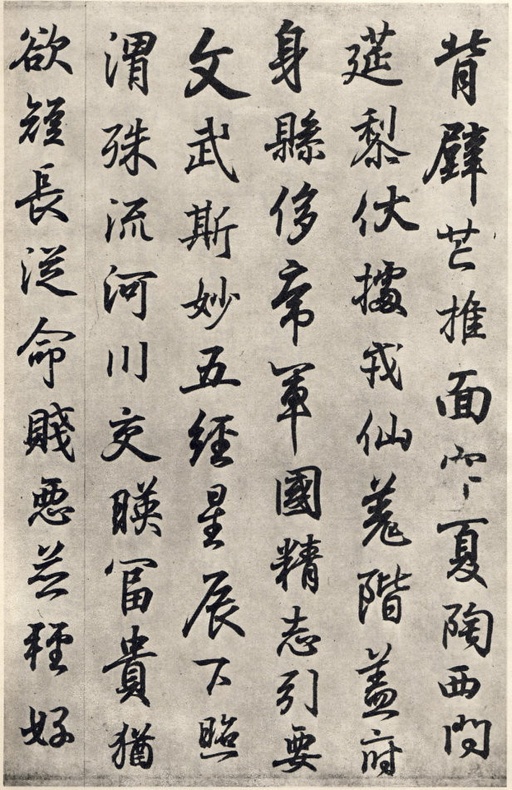 背壁芒推面穴夏陶西門
莚黎伏攂戎仙羌階蓋府
身縣侈帝軍國精志引要
文武斯妙五經星辰下照
渭殊流河川交暎冨貴猶
欲短長從命賤惡並種好